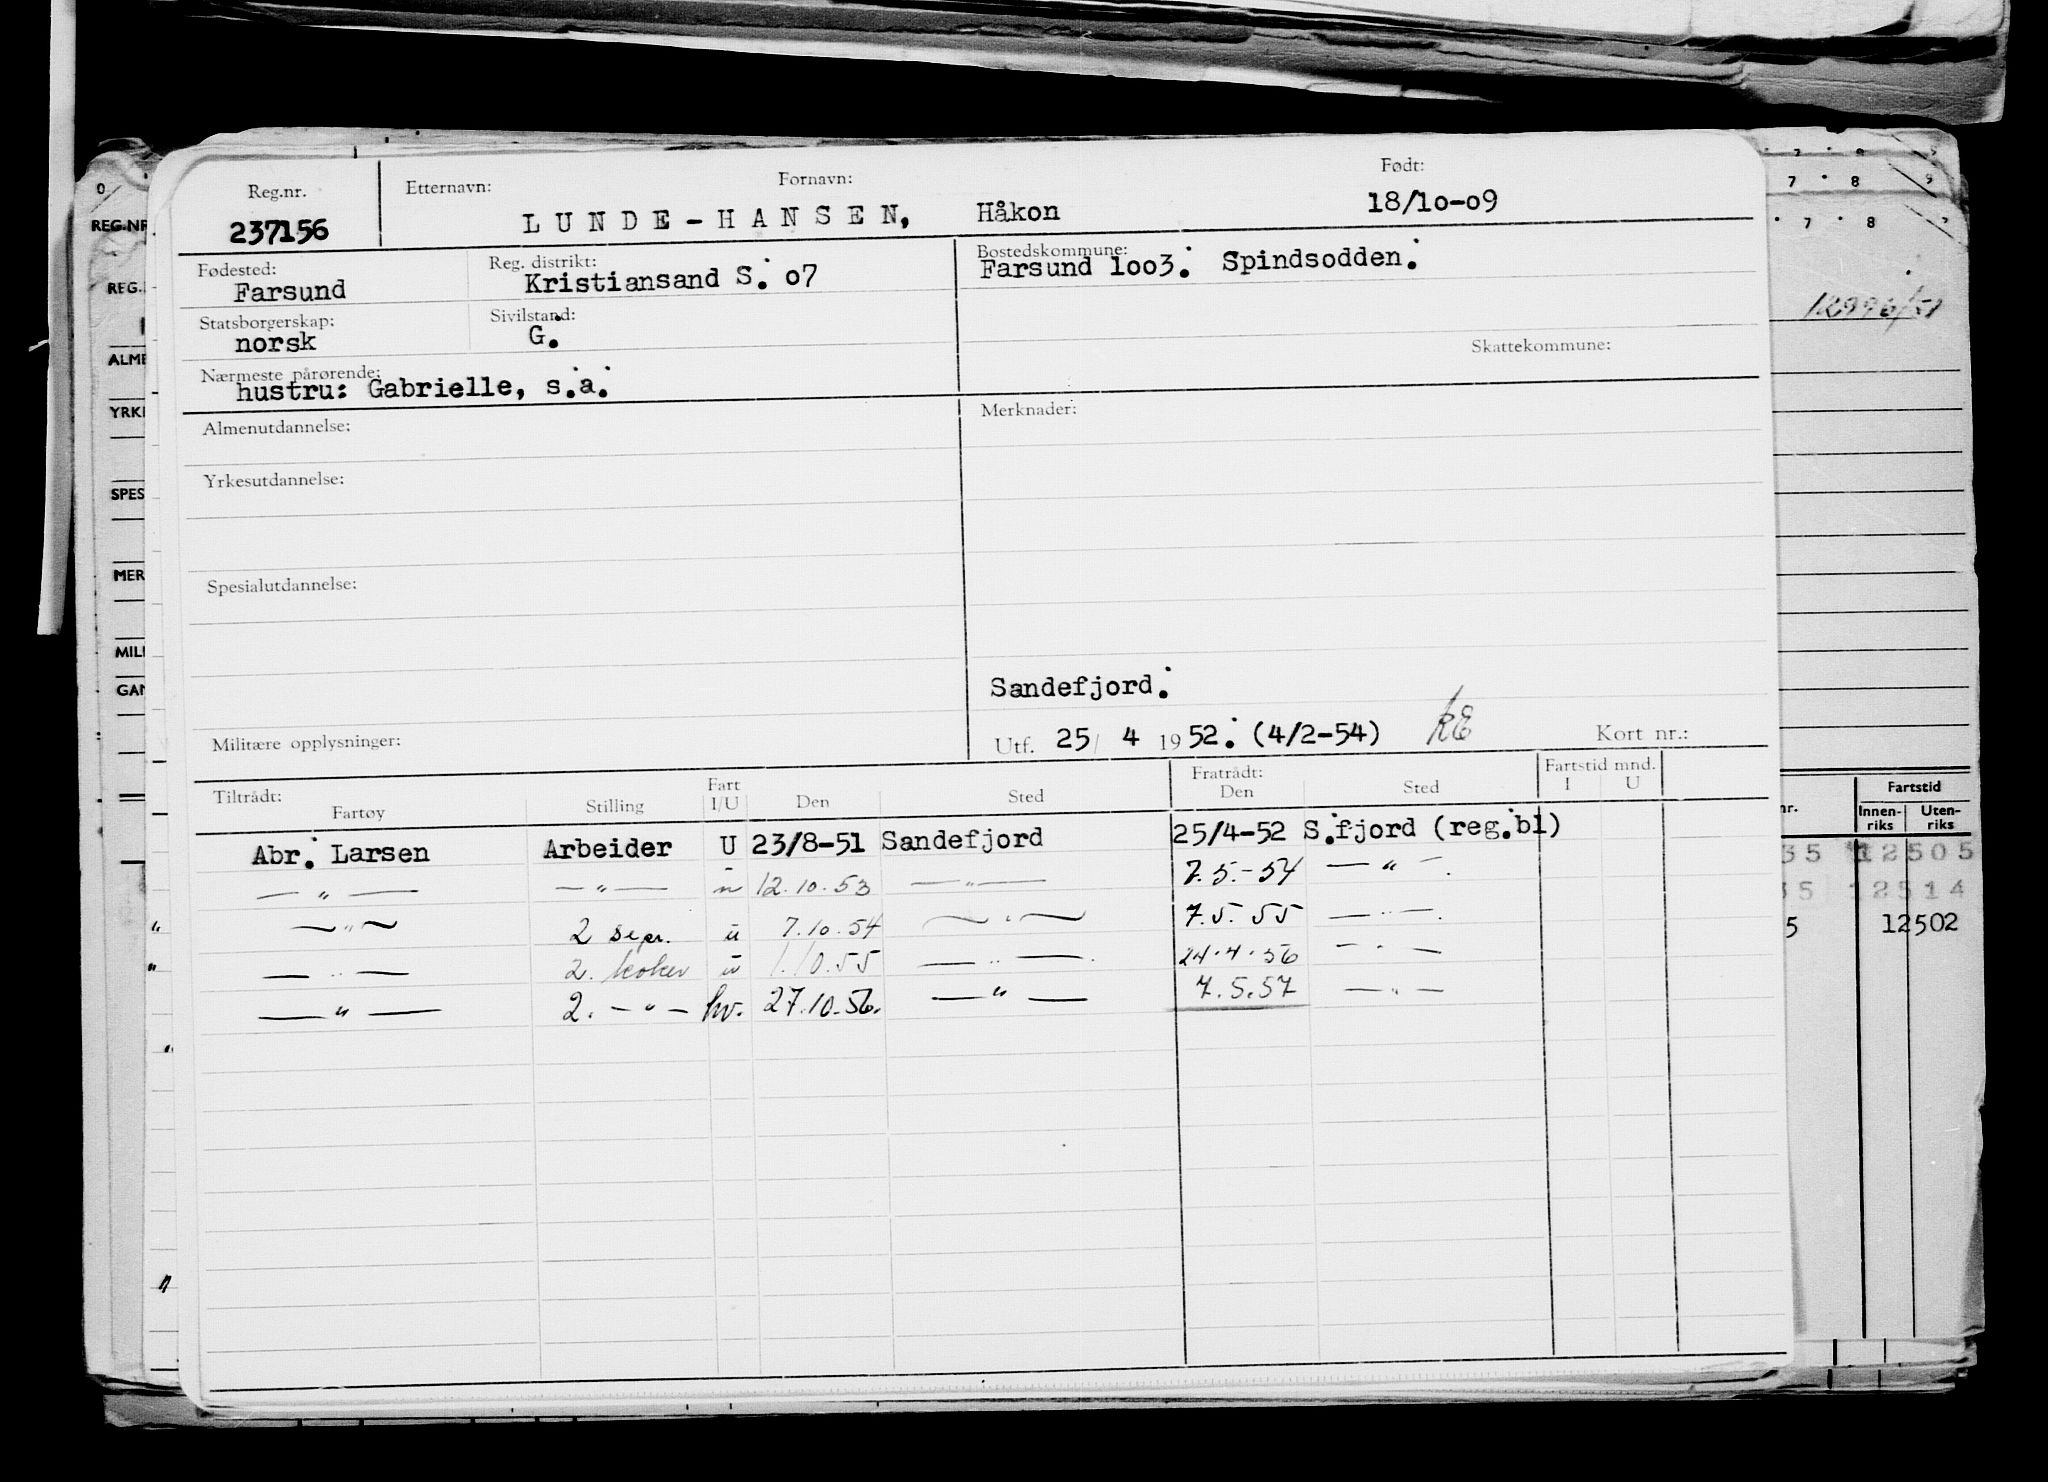 Reg.nr. Etternavn: Fornavn: Født:
237156 LUNDE-HANSEN, Håkon 18/10-09
Fødested: Reg. distrikt: Bostedskommune:
Farsund Kristiansand S. o7 Farsund 1oo3. Spindsodden.
Statsborgerskap: Sivilstand:
norsk G.
Skattekommune:
Nærmeste pårørende:
hustru: Gabrielle, s.a.
Almenutdannelse: Merknader:
Yrkesutdannelse:
Spesialutdannelse:
Sandefjord.
Militære opplysninger: Utf. 25/ 4 1952. (4/2-54) Kort nr.:
Tiltrådt: Fart Fratrådt: Fartstid mnd.
Fartøy Stilling I/U Den Sted Den Sted I U
Abr. Larsen Arbeider U 23/8-51 Sandefjord 25/4-52 S.fjord (reg.bl)
— " — — " — u 12.10.53 — " — 7.5.-54 — " —
— " — 2 sepr. u 7.10.54 — " — 7.5.55 — " —
— " — 2. koker u 1.10.55 — " — 24.4.56 — " —
— " — 2. — " — hv. 27.10.56. — " — 7.5.57 — " —
REG.NR
REG.
ALME
YRK
SPES
MER
MILI
GAN
0
7 8 9
7 8
12996/51
nr. Fartstid
Innen-riks Uten-riks
35 12505
35 12514
5 12502